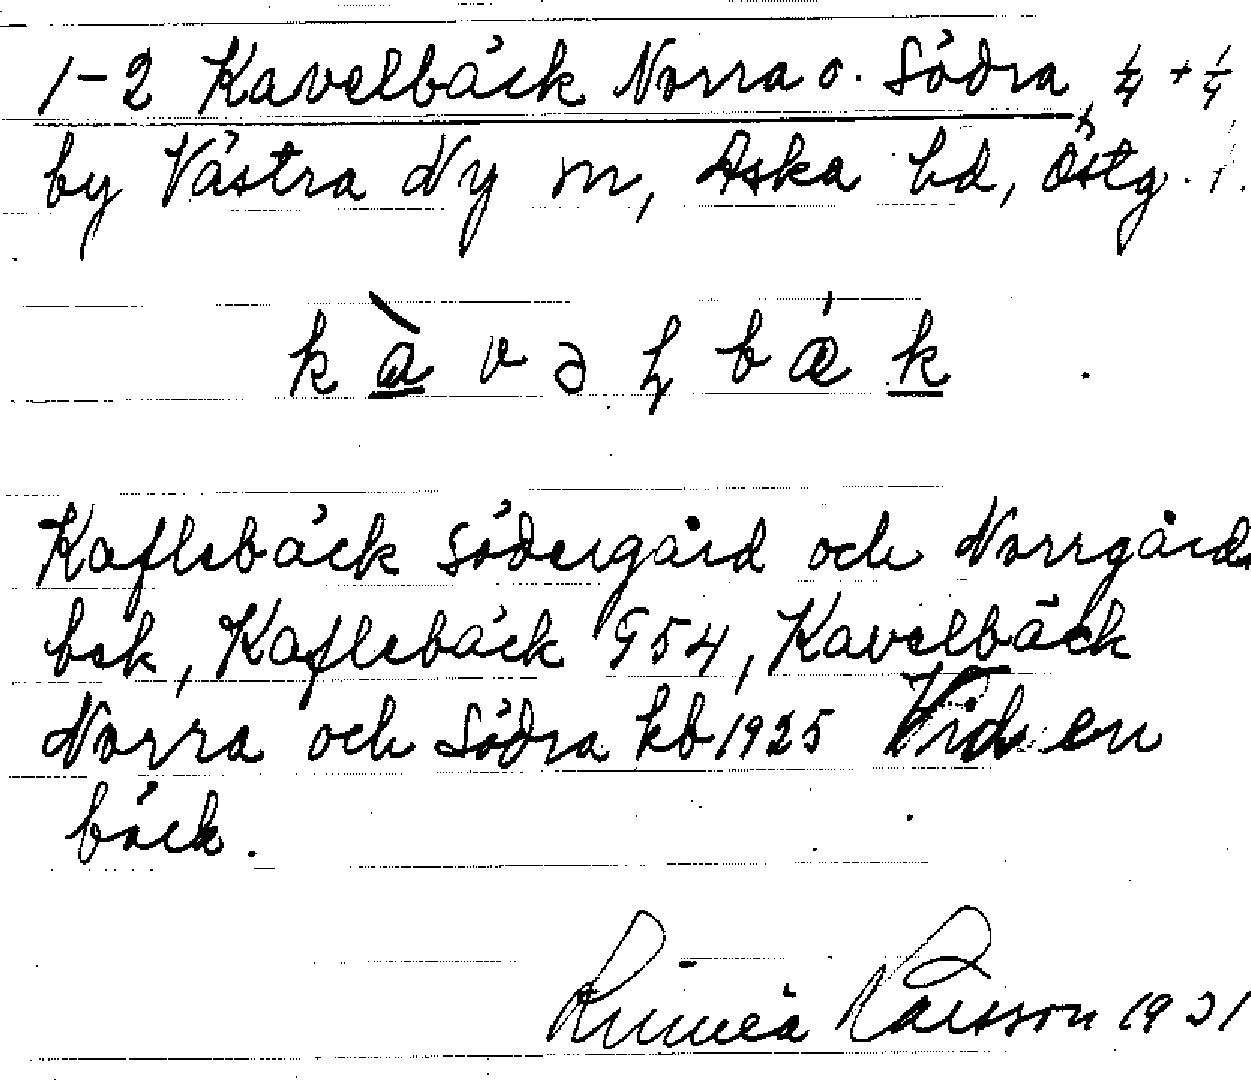 1-2 Kavelbäck Norra o. Södra, 1/4 + 1/4
by Västra Ny sn, Aska hd, Östg. l.
kàvəɭbǽk
Kaflebäck Södergård och Norrgård
bek, Kaflebäck G54, Kavelbäck
Norra och Södra kb 1925 Vid en
bäck.
Linnéa Larsson 1931